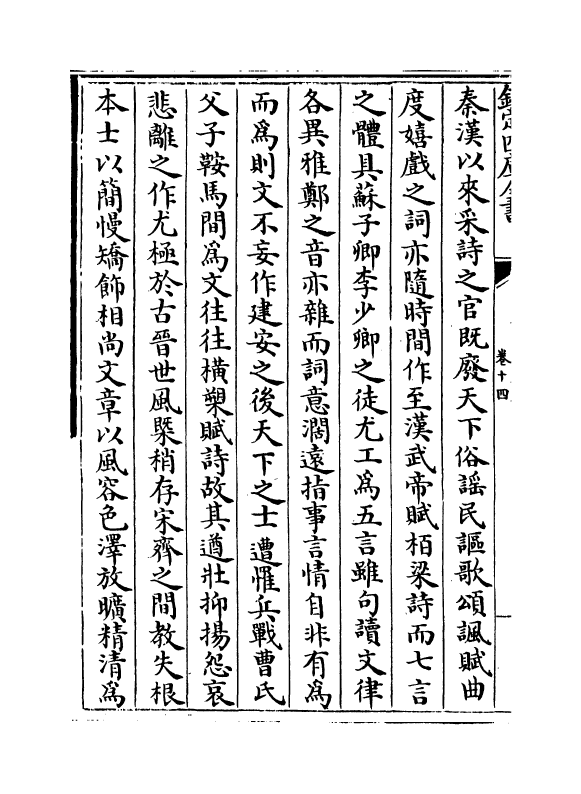 欽定四庫全書
卷十四
秦漢以來采詩之官既廢天下俗謡民謳歌頌諷賦曲
度嬉戲之詞亦隨時間作至漢武帝賦栢梁詩而七言
之體具蘇子卿李少卿之徒尤工為五言雖句讀文律
各異雅鄭之音亦雜而詞意濶遠指事言情自非有為
而為則文不妄作建安之後天下之士遭罹兵戰曹氏
父子鞍馬間為文往往横槊賦詩故其遒壯抑揚怨哀
悲離之作尤極於古晉世風槩稍存宋齊之間教失根
本士以簡慢矯飾相尚文章以風容色澤放曠精清為